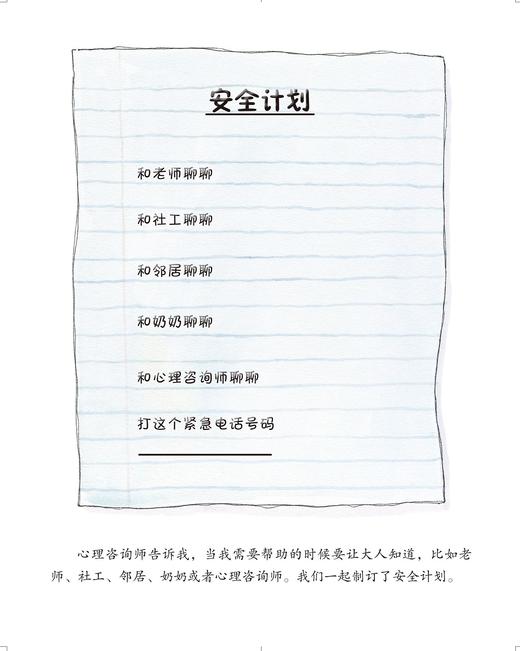 安全计划
和老师聊聊
和社工聊聊
和邻居聊聊
和奶奶聊聊
和心理咨询师聊聊
打这个紧急电话号码
心理咨询师告诉我，当我需要帮助的时候要让大人知道，比如老
师、社工、邻居、奶奶或者心理咨询师。我们一起制订了安全计划。